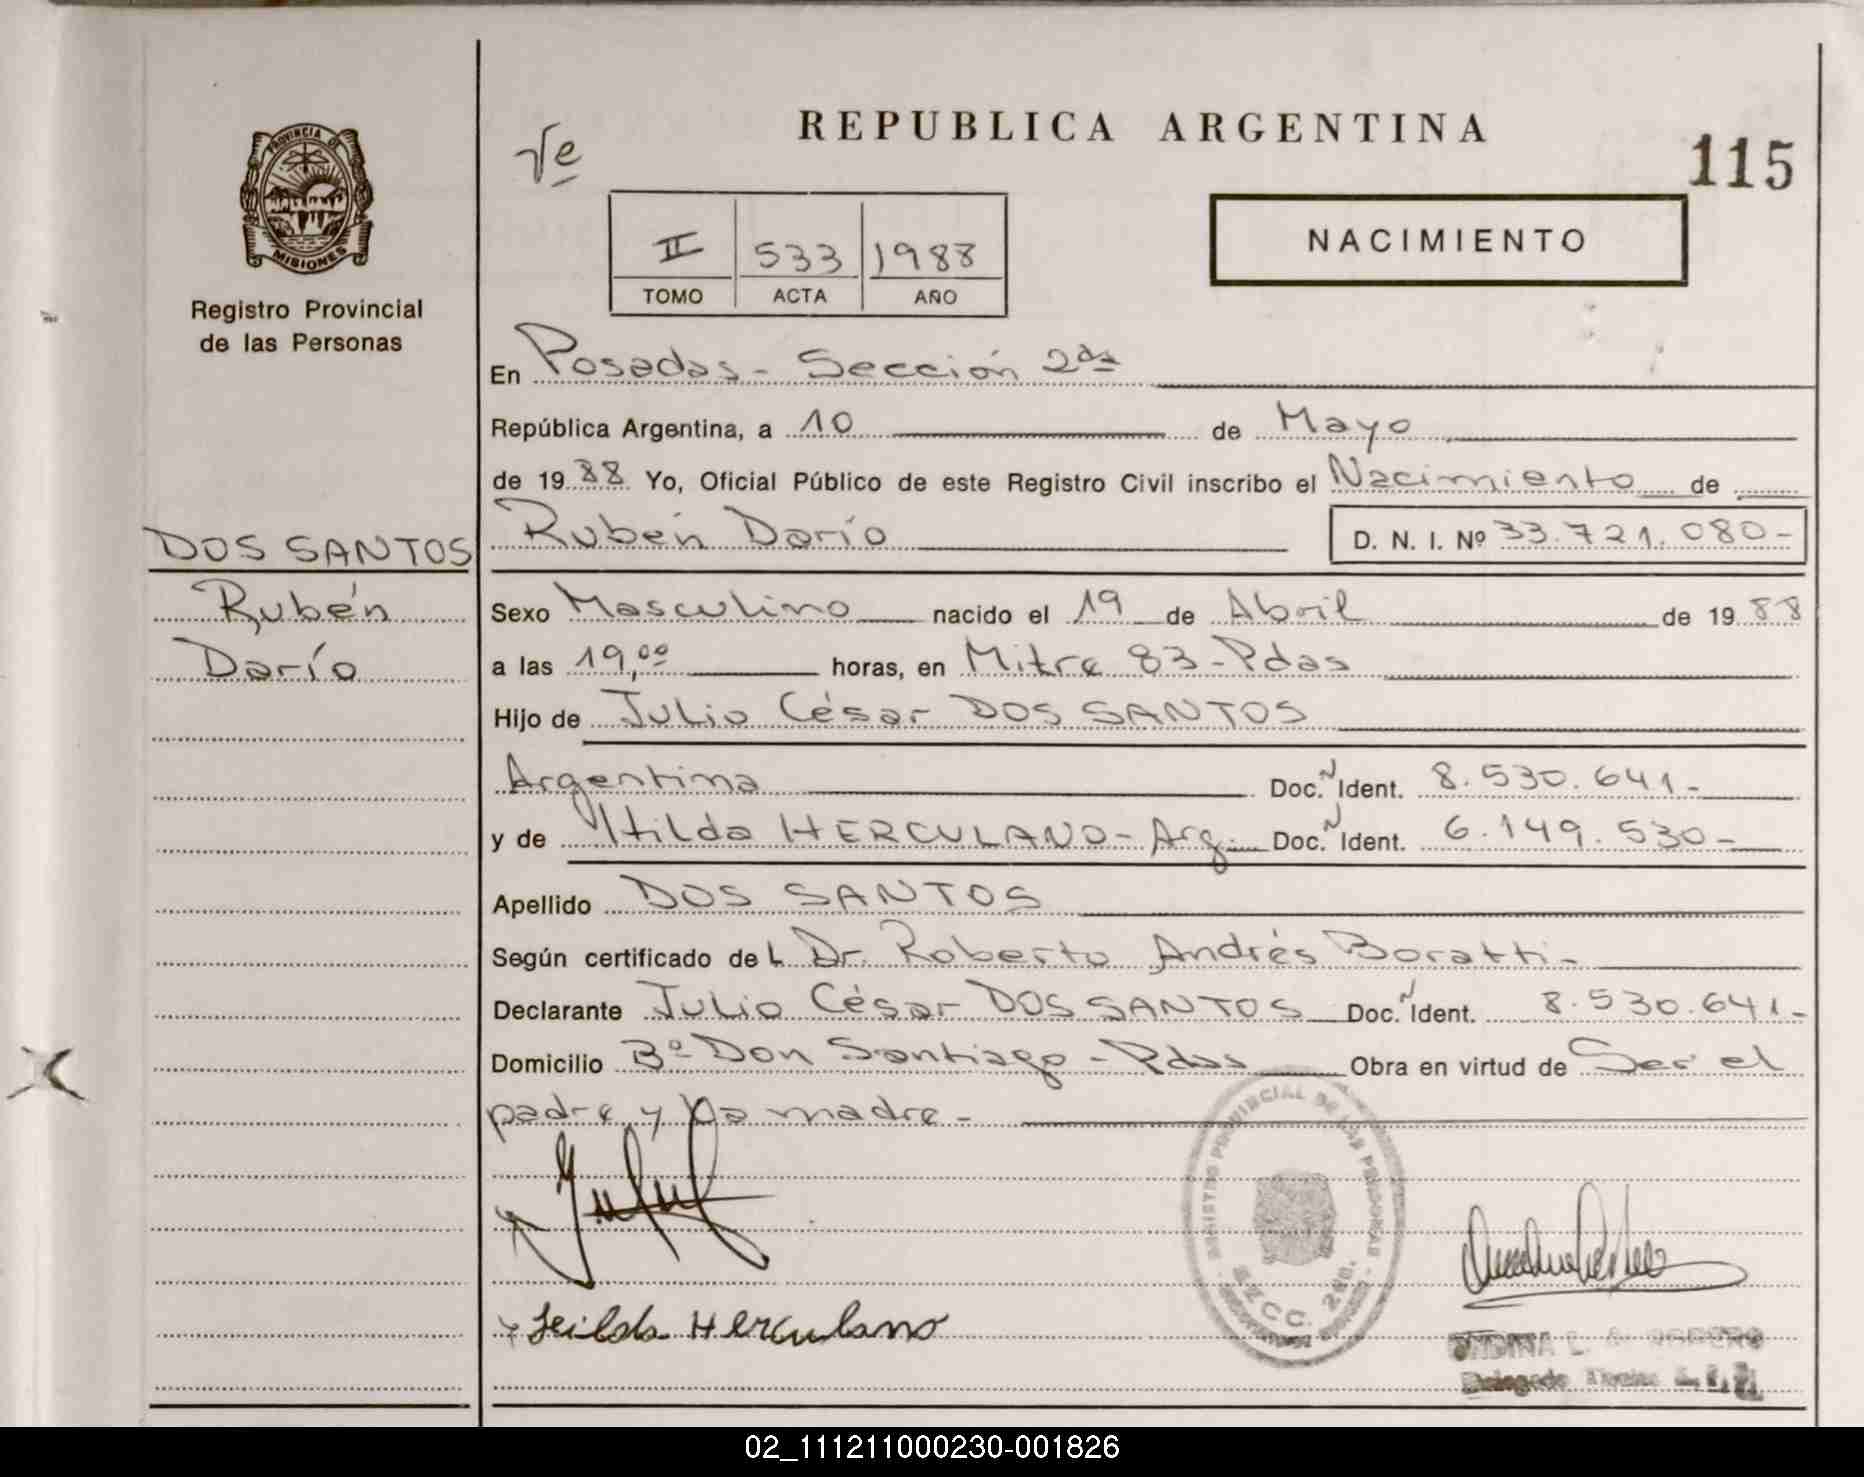 PROVINCIA DE
MISIONES
Registro Provincial
de las Personas
DOS SANTOS
Rubén
Darío
REPUBLICA ARGENTINA
115
II 533 1988
TOMO ACTA AÑO
NACIMIENTO
En Posadas - Sección 2da
República Argentina, a 10 de Mayo
de 1988 Yo, Oficial Público de este Registro Civil inscribo el Nacimiento de
Rubén Darío D. N. I. Nº 33.721.080-
Sexo Masculino nacido el 19 de Abril de 1988
a las 19,00 horas, en Mitre 83 - Pdas
Hijo de Julio César DOS SANTOS
Argentina Doc. N Ident. 8.530.641-
y de HERCULANO - Arg. Doc. N Ident. 6.149.530-
Apellido DOS SANTOS
Según certificado del Dr. Roberto Andrés Boratti-
Declarante Julio César DOS SANTOS Doc. N Ident. 8.530.641-
Domicilio Bº Don Santiago - Pdas Obra en virtud de Ser el
padre y la madre -
REGISTRO PROVINCIAL DE LAS PERSONAS
Herculano
ONDINA L.
02_111211000230-001826